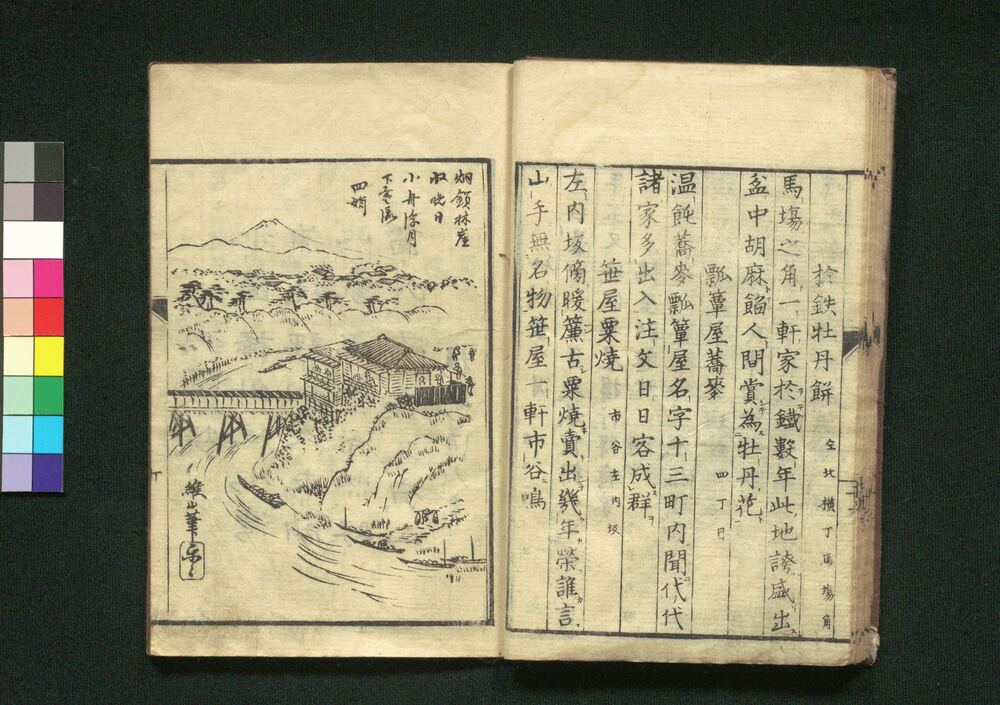 於鉄牡丹餅 仝北横丁馬場角
馬塲之角一軒家於鐵數年此地誇盛出
盆中胡麻餡人間賞為牡丹花
瓢簞屋蕎麥 四丁目
温飩蕎麥瓢簞屋名字十三町内聞代代
諸家多出入注文日日客成群
笹屋粟焼 市谷左内坂
左内坂傍暖簾古粟焼賣出幾年榮誰言
山手無名物笹屋一軒市谷鳴
小舟浮月
四時